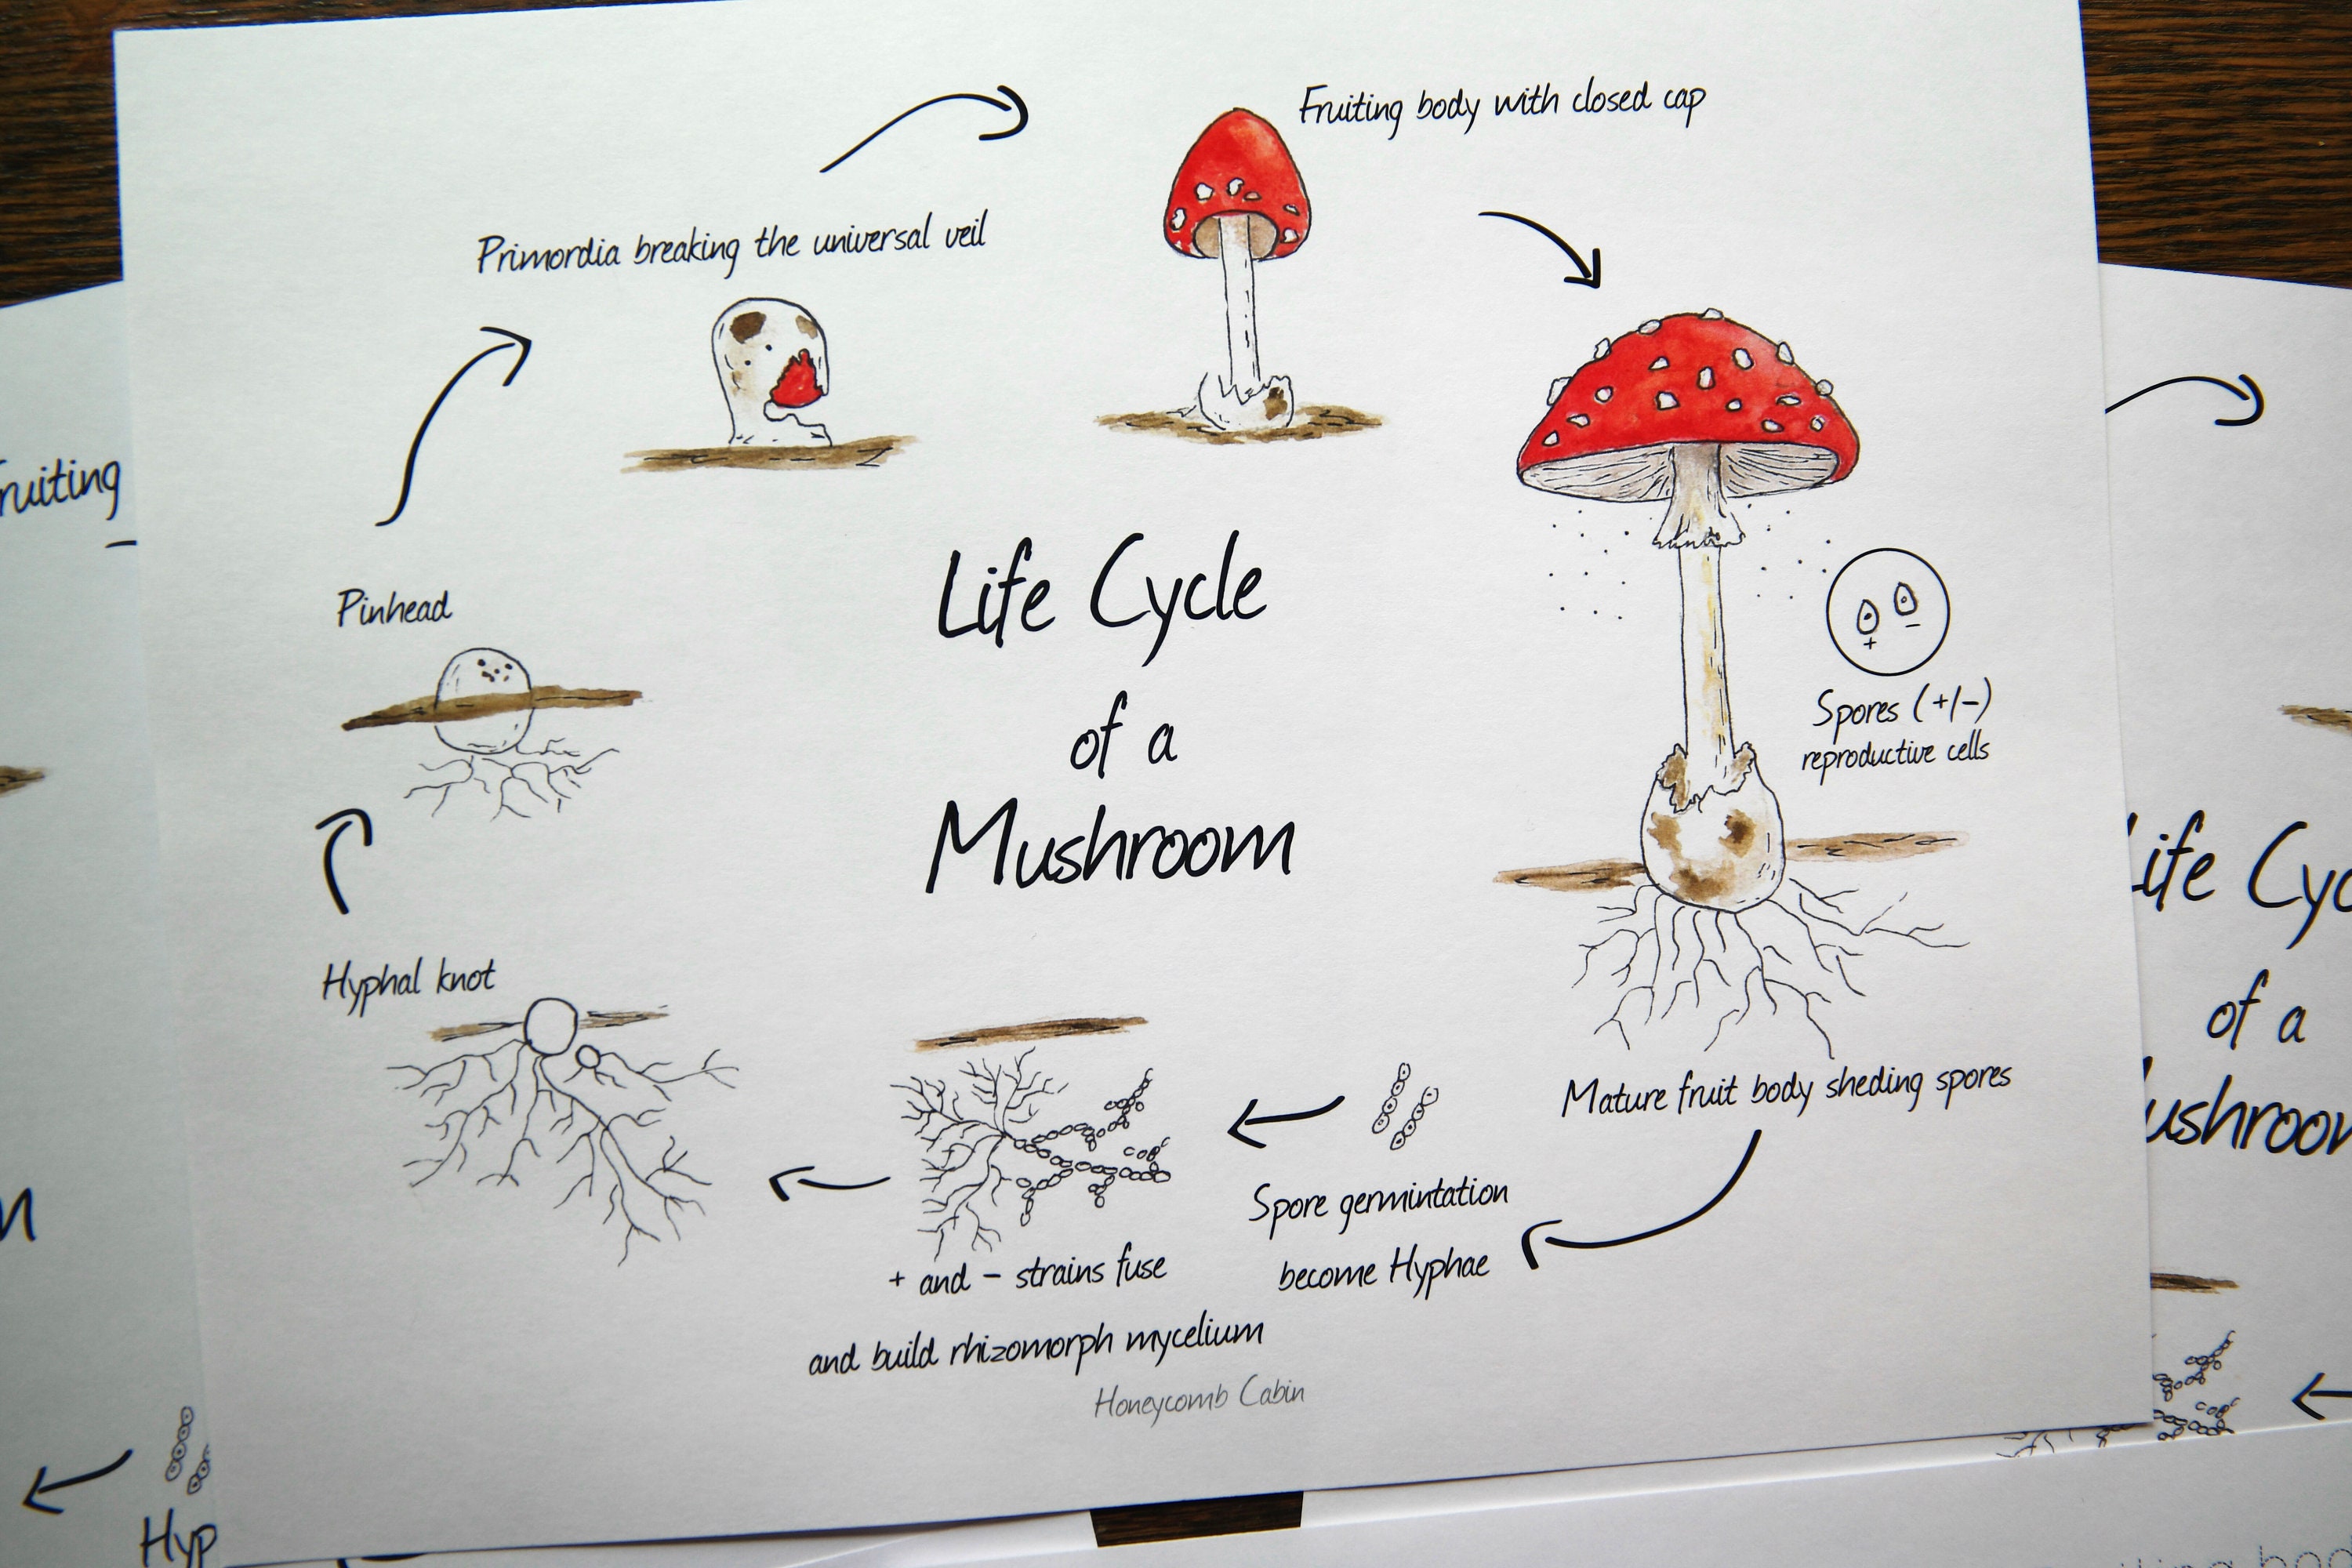 Fruiting body with closed cap
Primordia breaking the universal veil
Pinhead
Hyphal knot
Life Cycle
of a
Mushroom
Spores (+/-)
reproductive cells
Mature fruit body sheding spores
Spore germintation
become Hyphae
+ and - strains fuse
and build rhizomorph mycelium
Honeycomb Cabin
+
-
ruiting
Hyp
ife Cyc
of a
ushroom